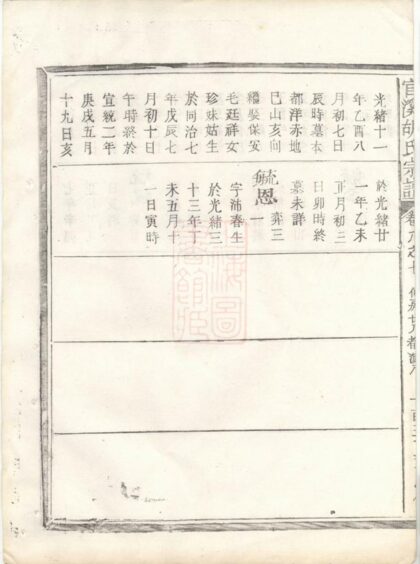 光緒十一
年乙酉八
月初七日
辰時墓本
都洋赤地
巳山亥向
繼娶保安
毛廷祥女
珍妹姑生
於同治七
年戊辰七
月初十日
午時終於
宣統二年
庚戌五月
十九日亥
於光緒廿
一年乙未
正月初三
日卯時終
墓未詳
弈三
毓恩一
字沛春生
於光緒三
十三年丁
未五月十
一日寅時
宗譜